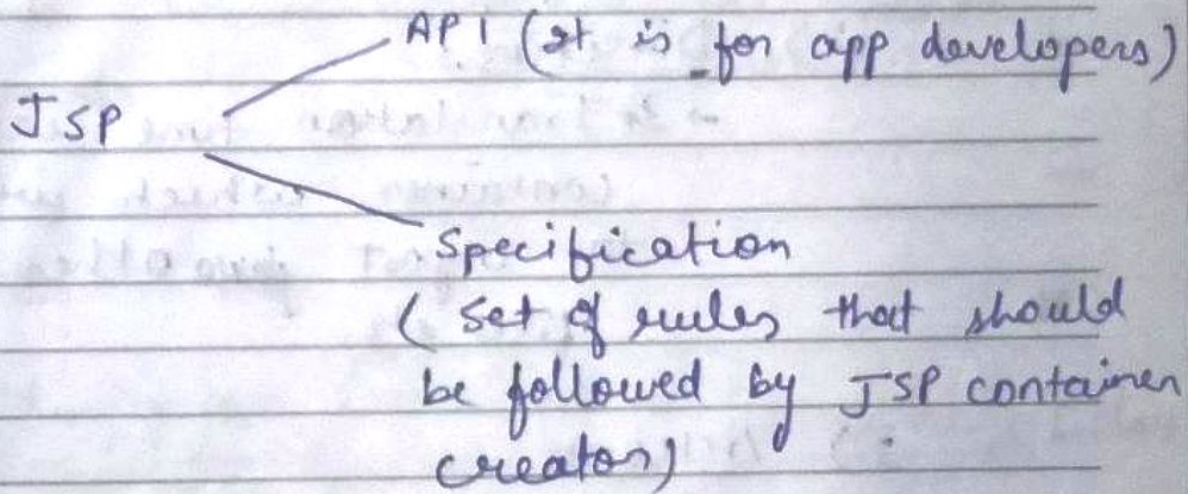 API (It is for app developers)
JSP
Specification
(Set of rules that should
be followed by JSP container
creator)